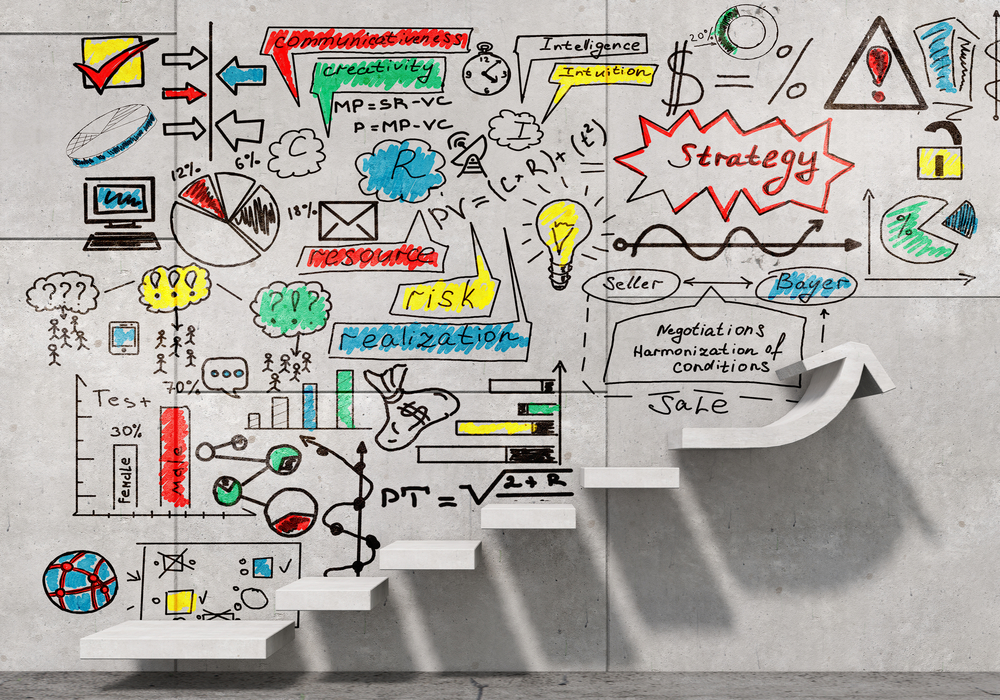 communicativeness
creativity
MP=SR-VC
P=MP-VC
12
3
6
9
Intelligence
Intuition
20%
$ = %
!
C
R
I
PV = (C+R) + (t²) =
Strategy
12%
6%
18%
%
resource
risk
realization
Seller
Bayer
Negotiations
Harmonization of
conditions
Sale
???
!?!
?!?
70%
...
Test
30%
Female
Male
$
PT = √2+R